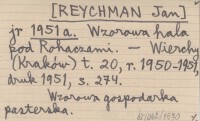 [REYCHMAN Jan]
jr 1951 a. Wzorowa hala
pod Rohaczami. — Wierchy
(Kraków) t. 20, r. 1950-1951,
druk 1951, s. 274.
Wzorowa gospodarka
pasterska.